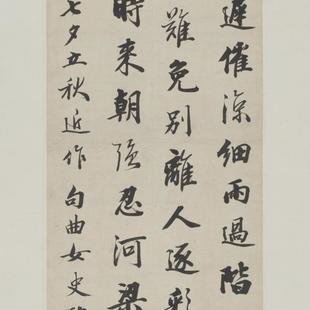 遲催涼細雨過階
難免别離人逐彩
時来朝強忍河梁
七夕立秋近作句曲女史